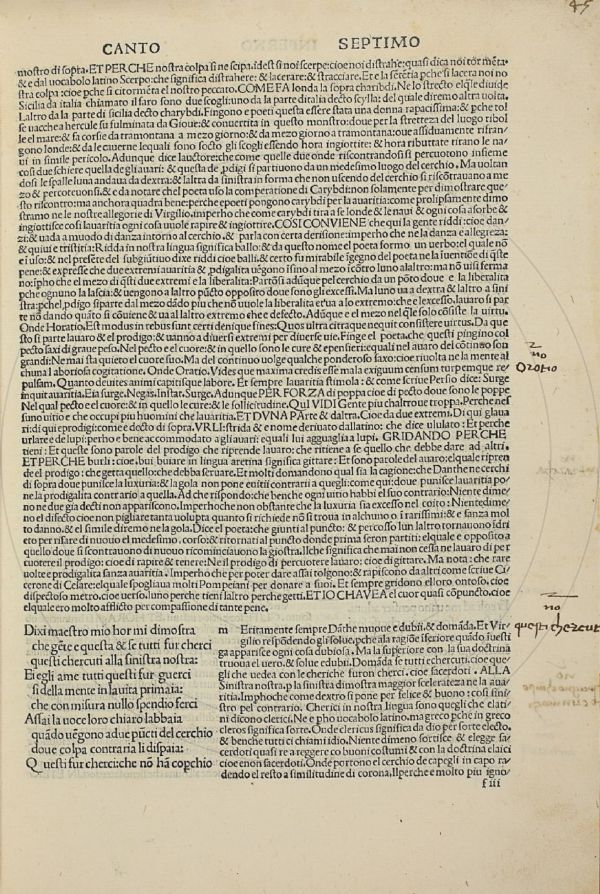 45
CANTO SEPTIMO
mostro di sopra. ET PERCHE nostra colpa si ne scipa. idest si noi scerpe: cioe noi distrahe: quasi dica noi tormēta.
& e dal uocabolo latino Scerpo: che significa distrahere: & lacerare: & stracciare. Et e la sētētia pche si lacera noi no
stra colpa: cioe pche si ci tormēta el nostro peccato. COME FA londa la sopra charibdi. Ne lo strecto el qle diuide
Sicilia da italia chiamato il faro sono due scogli: uno da la parte ditalia decto scylla: del quale diremo altra uolta.
Laltro da la parte di sicilia decto charybdi. Fingono e poeti questa essere stata una donna rapacissima: & pche tol
se uacche a hercule fu fulminata da Gioue: & conuertita in questo monstro: doue per la stretteza del luogo riboL
le el mare: & fa corsi da tramontana a mezo giorno: & da mezo giorno a tramontana: oue assiduamente rifran/
gono londe: & da le cauerne lequali sono socto gli scogli essendo hora ingiottite: & hora ributtate tirano le na/
ui in simile pericolo. Adunque dice lauctore: che come quelle due onde riscontrandosi si percuotono insieme
cosi due schiere quella de gli auari: & questa de pdigi si partiuono da un medesimo luogo del cerchio. Ma uoltan
dosi le spalle luna andaua da dextra: & laltra da sinistra in forma che non uscendo del cerchio si riscōtrauano a me
zo & percuotonsi. & e da notare chel poeta uso la comperatione di Carybdi: non solamente per dimostrare que/
sto riscontro: ma anchora quadra bene: perche e poeti pongono carybdi per la auaritia: come prolipsamente dimo
stramo ne le nostre allegorie di Virgilio. imperho che come carybdi tira a se londe & le naui & ogni cosa asorbe &
ingiottisce cosi lauaritia ogni cosa uuole rapire & inghiottire. COSI CONVIENE che qui la gente riddi: cioe dan/
zi: & uada a muodo di danza intorno al cerchio. & parla con certa derisione: imperho che ne la danza e allegreza:
& qui ui e tristitia: & ridda in nostra lingua significa ballo: & da questo nome el poeta formo un uerbo: el quale nō
e i uso: & nel presēte del subgiūtiuo dixe riddi cioe balli. & certo fu mirabile īgegno del poeta ne la īuentiōe di qste
pene: & expresse che due extremi auaritia & pdigalita uēgono isino al mezo icōtro luno alaltro: ma nō uisi ferma
no: ipho che el mezo di qsti due extremi e la liberalita: Partōsi adūque pel cerchio da un pōto doue e la liberalita
pche ognuno la lascia: & uengono a laltro pūcto opposito doue sono gli excessi. Ma luno ua a dextra & laltro a sini
stra: pchel pdigo si parte dal mezo dādo piu che nō uuole la liberalita et ua a lo extremo: che e lexcesso. lauaro si par
te nō dando quāto si cōuiene & ua al laltro extremo che e defecto. Adūque e el mezo nel qle solo cōsiste la uirtu.
Onde Horatio. Est modus in rebus sunt certi denique fines: Quos ultra citraque nequit consistere uirtus. Da que
sto si parte lauaro & el prodigo: & uanno a diuersi extremi per diuerse uie. Finge el poeta che questi pingino col
pecto saxi di graue peso. Nel pecto e el cuore: & in quello sono le cure & e pensieri: equali nel auaro del cōtinuo son
grandi: Ne mai sta quieto el cuore suo. Ma del continuo uolge qualche ponderoso saxo: cioe riuolta ne la mente al
chuna laboriosa cogitatione. Onde Oratio. Vides que maxima credis esse mala exiguum censum turpemque re/
pulsam. Quanto deuites animi capitisque labore. Et sempre lauaritia stimola: & come scriue Persio dice: Surge
inquit auaritia. Eia surge. Negas. Instat. Surge. Adunque PER FORZA di poppa cioe di pecto doue sono le poppe
Nel qual pecto e el cuore: & in quello le cure: & le sollecitudine. Qui VIDI Gente piu chaltroue troppa. Perche nes
suno uitio e che occupi piu huomini che lauaritia. ET DVNA PARte & daltra. Cioe da due extremi. Di qui glaua
ri: di qui eprodigi: come e decto di sopra. VRLI: strida & e nome deriuato dallatino: che dice ululato: Et perche
urlare e de lupi: perho e bene accommodato a gli auari: equali lui agguaglia a lupi. GRIDANDO PERCHE
tieni: Et queste sono parole del prodigo che riprende lauaro: che ritiene a se quello che debbe dare ad altri.
ET PERCHE burli: cioe. bui buiare in lingua aretina significa gittare: Et sono parole del auaro: elquale ripren
de el prodigo: che getta quello che debba seruare. Et molti domandono qual sia la cagione: che Danthe ne cerchi
di sopra doue punisce la luxuria: & la gola non pone euitii contrarii a quegli: come qui: doue punisce lauaritia po/
ne la prodigalita contrario a quella. Ad che rispondo: che benche ogni uitio habbi el suo contrario: Niente dime/
no ne due gia decti non appariscono. Imperhoche non obstante che la luxuria sia excesso nel coito: Nientedime/
no el difecto cioe non pigliare tanta uolupta quanto si richiede nō si troua in alchuno o i rarissimi: & e sanza mol
to danno. & el simile diremo ne la gola. Dice el poeta che giunti al puncto: & percosso lun laltro tornauono idri
eto per rifare di nuouo el medesimo. corso: & ritornati al puncto donde prima seron partiti: elquale e opposito a
quello doue si scontrauono di nuouo ricominciauono la giostra. Ilche significa che mai non cessa ne lauaro di per
cuotere il prodigo: cioe di rapire & tenere: Ne il prodigo di percuotere lauaro: cioe di gittare. Ma nota: che rare
uolte e prodigalita sanza auaritia. Imperho che per poter dare assai tolgono: & rapiscono da altri come scriue Ci/
cerone di Cesare: elquale spogliaua molti Pompeiani per donare a suoi. Et sempre gridono el loro ontoso. cioe
dispectoso metro. cioe uerso. luno perche tieni laltro perche getti. ET IO CHAVEA el cuor quasi cōpuncto. cioe
elquale ero molto afflicto per compassione di tante pene.
Dixi maestro mio hor mi dimostra
che gēte e questa & se tutti fur cherci
questi chercuti alla sinistra nostra:
Et egli ame tutti questi fur guerci
si della mente in la uita primaia:
che con misura nullo spendio ferci
Assai la uoce loro chiaro labbaia
quādo uēgono adue pūcti del cerchio
doue colpa contraria li dispaia:
Questi fur cherci: che nō hā copchio
m Eritamente sempre Dāthe muoue e dubii. & domāda. Et Vir
gilio respōdendo gli solue. pche ala ragiōe īseriore quādo iuesti
ga apparisce ogni cosa dubiosa. Ma la superiore con la sua doctrina
truoua el uero. & solue edubii. Domāda se tutti echercuti. cioe que/
gli che uedea con le cheriche furon cherci. cioe sacerdoti. ALLA
Sinistra nostra. p la sinistra dimostra maggior scelerateza ne la aua/
ritia. Imphoche come dextro si pone per felice & buono: cosi sini/
stro pel contrario. Cherici in nostra lingua sono quegli che elati/
ni dicono clerici. Ne e pho uocabolo latino. ma greco pche in greco
cleros significa sorte. Onde clericus significa da dio per sorte electo.
& benche tutti ci chiami idio. Niente dimeno sortisce & elegge sa/
cerdoti quasi re a reggere co buoni costumi & con la doctrina elaici
cioe enon sacerdoti. Onde portono el cerchio de capegli in capo ra
dendo el resto a similitudine di corona. Ilperche e molto piu igno/
f iii
no
Oratio
no
questi chercuti